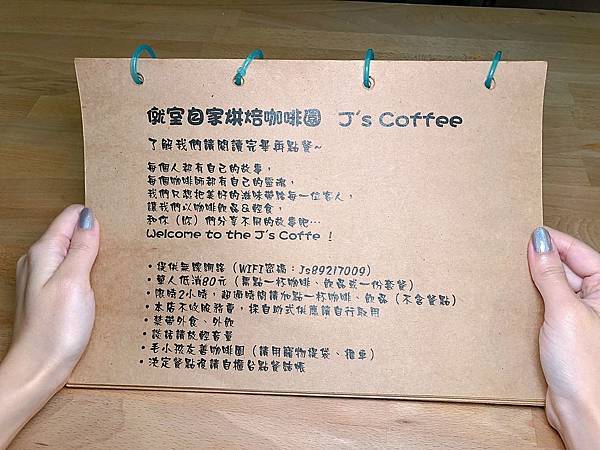 僦室自家烘焙咖啡圈 J's Coffee
了解我們請閱讀完畢再點餐~
每個人都有自己的故事,
每個咖啡師都有自己的靈魂,
我們只想把美好的滋味帶給每一位客人,
讓我們以咖啡飲品&輕食,
和你(妳)們分享不同的故事吧…
Welcome to the J's Coffe !
•提供無線網路(WIFI密碼:Js89217009)
•單人低消80元(需點一杯咖啡、飲品或一份套餐)
•限時2小時,超過時間請加點一杯咖啡、飲品(不含餐點)
•本店不收服務費,採自助式供應請自行取用
•禁帶外食、外飲
•談話請放輕音量
•毛小孩友善咖啡圈(請用寵物提袋、推車)
•決定餐點後請自櫃台點餐結帳